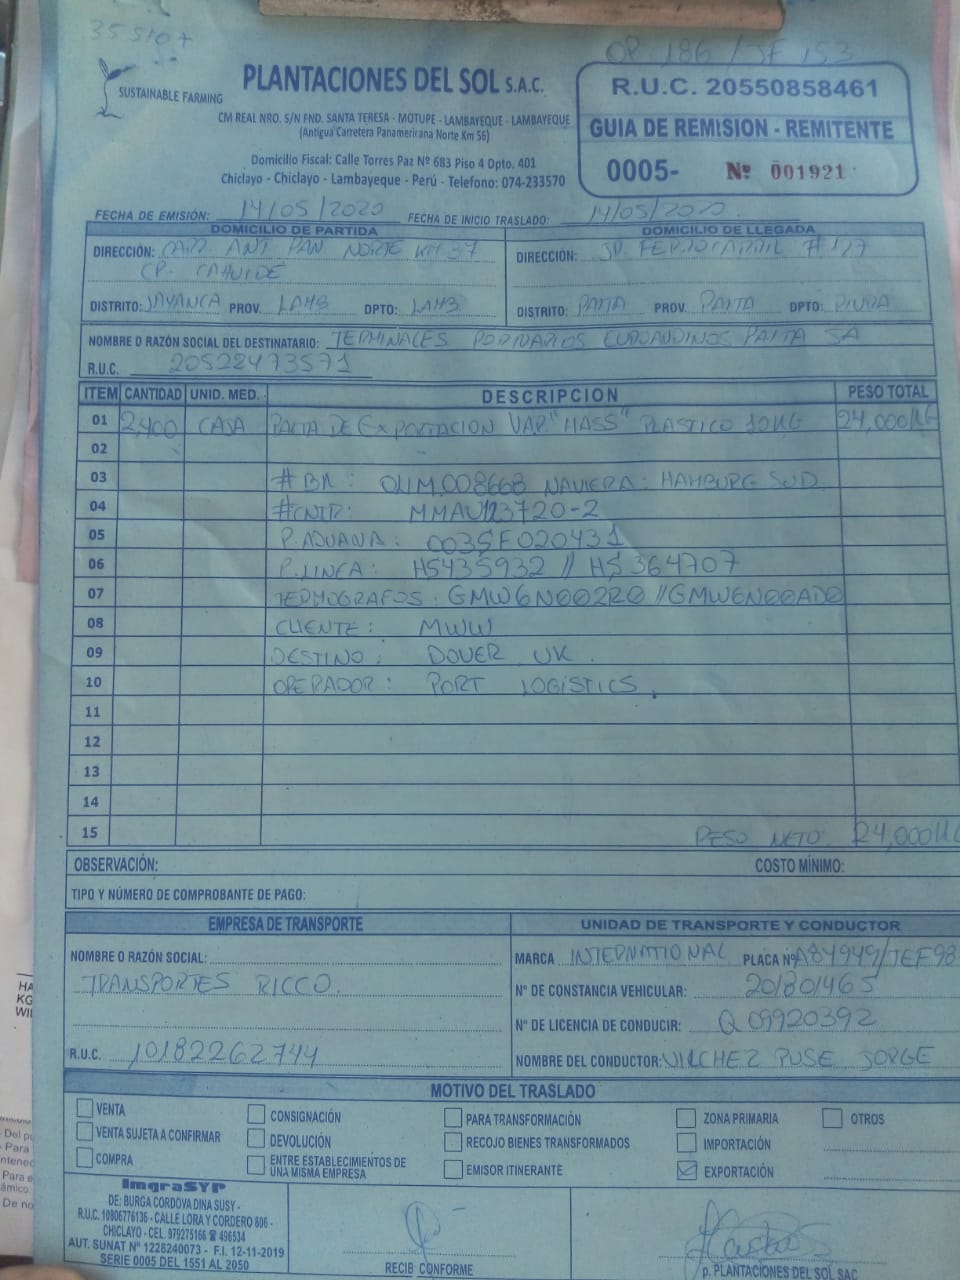 35510+
OP 186 / JF 153
SUSTAINABLE FARMING
PLANTACIONES DEL SOL S.A.C.
CM REAL NRO. S/N FND. SANTA TERESA - MOTUPE - LAMBAYEQUE - LAMBAYEQUE
(Antigua Carretera Panamericana Norte Km 56)
Domicilio Fiscal: Calle Torres Paz Nº 683 Piso 4 Dpto. 401
Chiclayo - Chiclayo - Lambayeque - Perú - Telefono: 074-233570
R.U.C. 20550858461
GUIA DE REMISION - REMITENTE
0005- Nº 001921
FECHA DE EMISIÓN: 14/05/2020 FECHA DE INICIO TRASLADO: 14/05/2020
DOMICILIO DE PARTIDA
DIRECCIÓN: CARR. ANT. PAN. NORTE KM 37
CP. CAHUIDE
DISTRITO: JAYANCA PROV. LAMB DPTO: LAMB
DOMICILIO DE LLEGADA
DIRECCIÓN: JV. FERROCARRIL # 127
DISTRITO: PAITA PROV. PAITA DPTO: PIURA
NOMBRE O RAZÓN SOCIAL DEL DESTINATARIO: TERMINALES PORTUARIOS EUROANDINOS PAITA SA
R.U.C. 20522473571
ITEM CANTIDAD UNID. MED. DESCRIPCION PESO TOTAL
01 2,400 CAJA PALTA DE EXPORTACION VAR "HASS" PLASTICO 10KG 24,000KG
02
03 # BK: OLIM.008668 NAVIERA: HAMBURG SUD
04 #CNTR: MMAU123720-2
05 P. ADUANA: 003SF020431
06 P. LINEA: HS435932 // HS364707
07 TERMOGRAFOS: GMW6N002R0 // GMW6N00AD0
08 CLIENTE: MWW
09 DESTINO: DOVER UK.
10 OPERADOR: PORT LOGISTICS.
11
12
13
14
15 PESO NETO: 24,000KG
OBSERVACIÓN: COSTO MÍNIMO:
TIPO Y NÚMERO DE COMPROBANTE DE PAGO:
EMPRESA DE TRANSPORTE
NOMBRE O RAZÓN SOCIAL:
TRANSPORTES RICCO.
R.U.C. 10182262744
UNIDAD DE TRANSPORTE Y CONDUCTOR
MARCA INTERNATIONAL PLACA Nº A84949/TEF98
N° DE CONSTANCIA VEHICULAR: 201801465
N° DE LICENCIA DE CONDUCIR: Q 09920392
NOMBRE DEL CONDUCTOR: VILCHEZ PUSE JORGE
MOTIVO DEL TRASLADO
VENTA
VENTA SUJETA A CONFIRMAR
COMPRA
CONSIGNACIÓN
DEVOLUCIÓN
ENTRE ESTABLECIMIENTOS DE
UNA MISMA EMPRESA
PARA TRANSFORMACIÓN
RECOJO BIENES TRANSFORMADOS
EMISOR ITINERANTE
ZONA PRIMARIA
IMPORTACIÓN
EXPORTACIÓN
OTROS
ImgraSYP
DE: BURGA CORDOVA DINA SUSY -
R.U.C. 10806776136 - CALLE LORA Y CORDERO 806 -
CHICLAYO - CEL. 979275166 ☎ 496534
AUT. SUNAT N° 1228240073 - F.I. 12-11-2019
SERIE 0005 DEL 1551 AL 2050
RECIB CONFORME
p. PLANTACIONES DEL SOL SAC